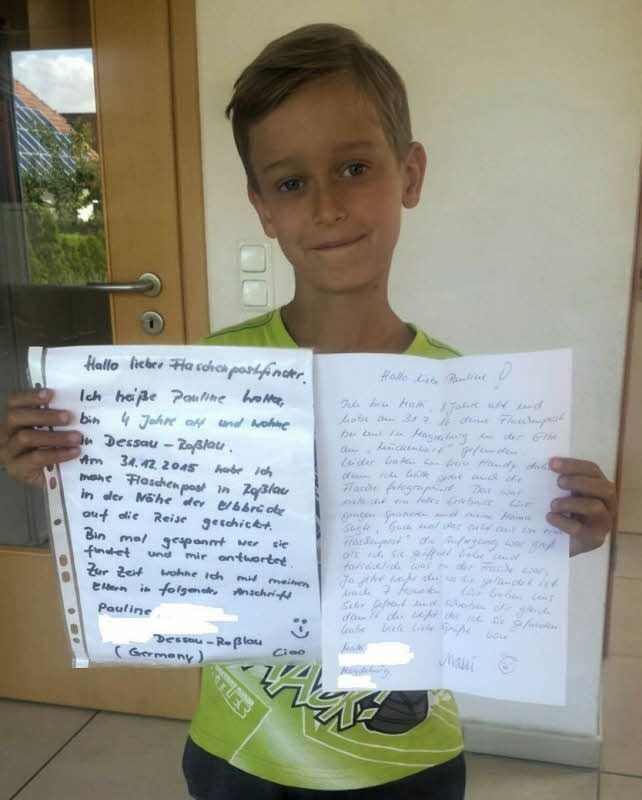 Hallo lieber Flaschenpostfinder.
Ich heiße Pauline
bin 4 Jahre alt und wohne
in Dessau-Roßlau.
Am 31.12.2015 habe ich
meine Flaschenpost in Roßlau
in der Nähe der Elbbrücke
auf die Reise geschickt.
Bin mal gespannt wer sie
findet und mir antwortet.
Zur Zeit wohne ich mit meinen
Eltern in folgender Anschrift
Pauline
Dessau-Roßlau
(Germany) Ciao
Hallo liebe Pauline!
Ich bin Matti, 8 Jahre alt und
habe am 31.7.16 deine Flaschenpost
bei uns in Magdeburg in der Elbe
am gefunden
Leider hatten wir kein Handy dabei
denn ich hätte gerne und die
Flasche fotografiert. Das war
ein tolles Erlebnis. Wir
gingen spazieren und meine Mama
sagte, "Guck mal das sieht aus wie eine
Flaschenpost" die Aufregung war groß
als ich sie geöffnet habe und
tatsächlich was in der Flasche war.
Ja jetzt weißt du wo sie gelandet ist
nach 7 Monaten. Wir haben uns
sehr gefreut und schreiben dir gleich
damit du weißt das ich sie gefunden
habe. Viele liebe Grüße von
Matti
Magdeburg Matti